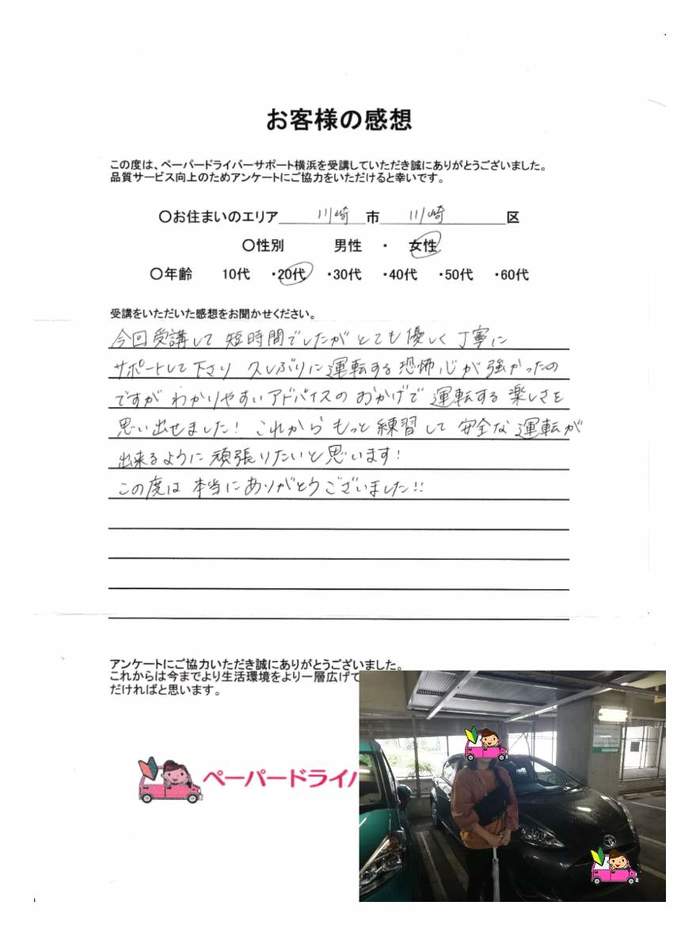 お客様の感想
この度は、ペーパードライバーサポート横浜を受講していただき誠にありがとうございました。
品質サービス向上のためアンケートにご協力をいただけると幸いです。
〇お住まいのエリア 川崎 市 川崎 区
〇性別 男性 ・ 女性
〇年齢 10代 ・20代 ・30代 ・40代 ・50代 ・60代
受講をいただいた感想をお聞かせください。
今回受講して 短時間でしたが とても優しく丁寧に
サポートして下さり 久しぶりに運転する恐怖心が強かったの
ですが わかりやすいアドバイスのおかげで 運転する楽しさを
思い出せました! これから もっと練習して 安全な運転が
出来るように頑張りたいと思います!
この度は 本当にありがとうございました!!
アンケートにご協力いただき誠にありがとうございました。
これからは今までより生活環境をより一層広げて
だければと思います。
ペーパードライバ